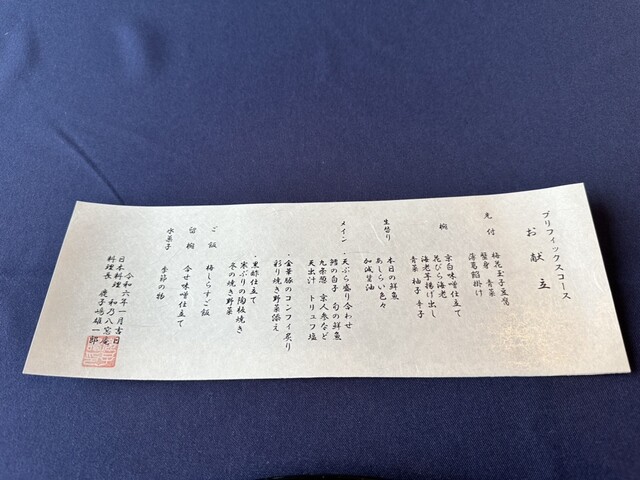 プリフィックスコース
お献立
先付
梅花玉子豆腐
蟹身 青菜
薄葛餡掛け
椀
京白味噌仕立て
花びら海老
海老芋揚げ出し
青菜 柚子 辛子
生替り
本日の鮮魚
あしらい色々
加減醤油
メイン
・天ぷら盛り合わせ
鱈の白子 旬の鮮魚
九条葱 京人参など
天出汁 トリュフ塩
・金華豚のコンフィ炙り
彩り焼き野菜添え
・黒酢仕立て
寒ぶりの陶板焼き
冬の焼き野菜
ご飯
梅しらすご飯
留椀
合せ味噌仕立て
水菓子
季節の物
令和六年一月吉日
日本料理 和乃八窓庵
料理長 鹿子嶋雄一郎